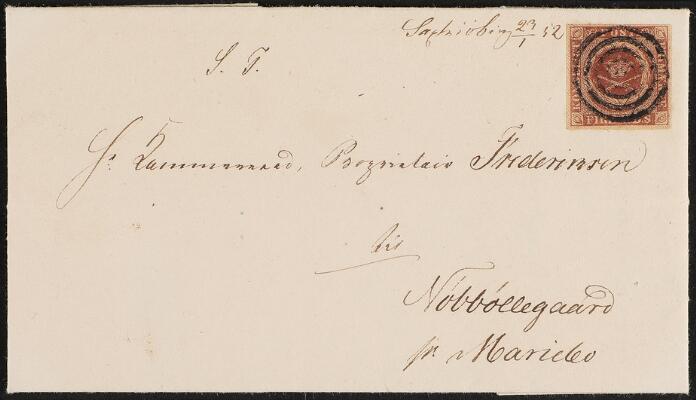 Saxkiöbing 23/1 52
S. T.
Hr Kammerraad, Proprietair Frederiksen
til
Nöbböllegaard
pr Mariebo
FIRE R.B.S.